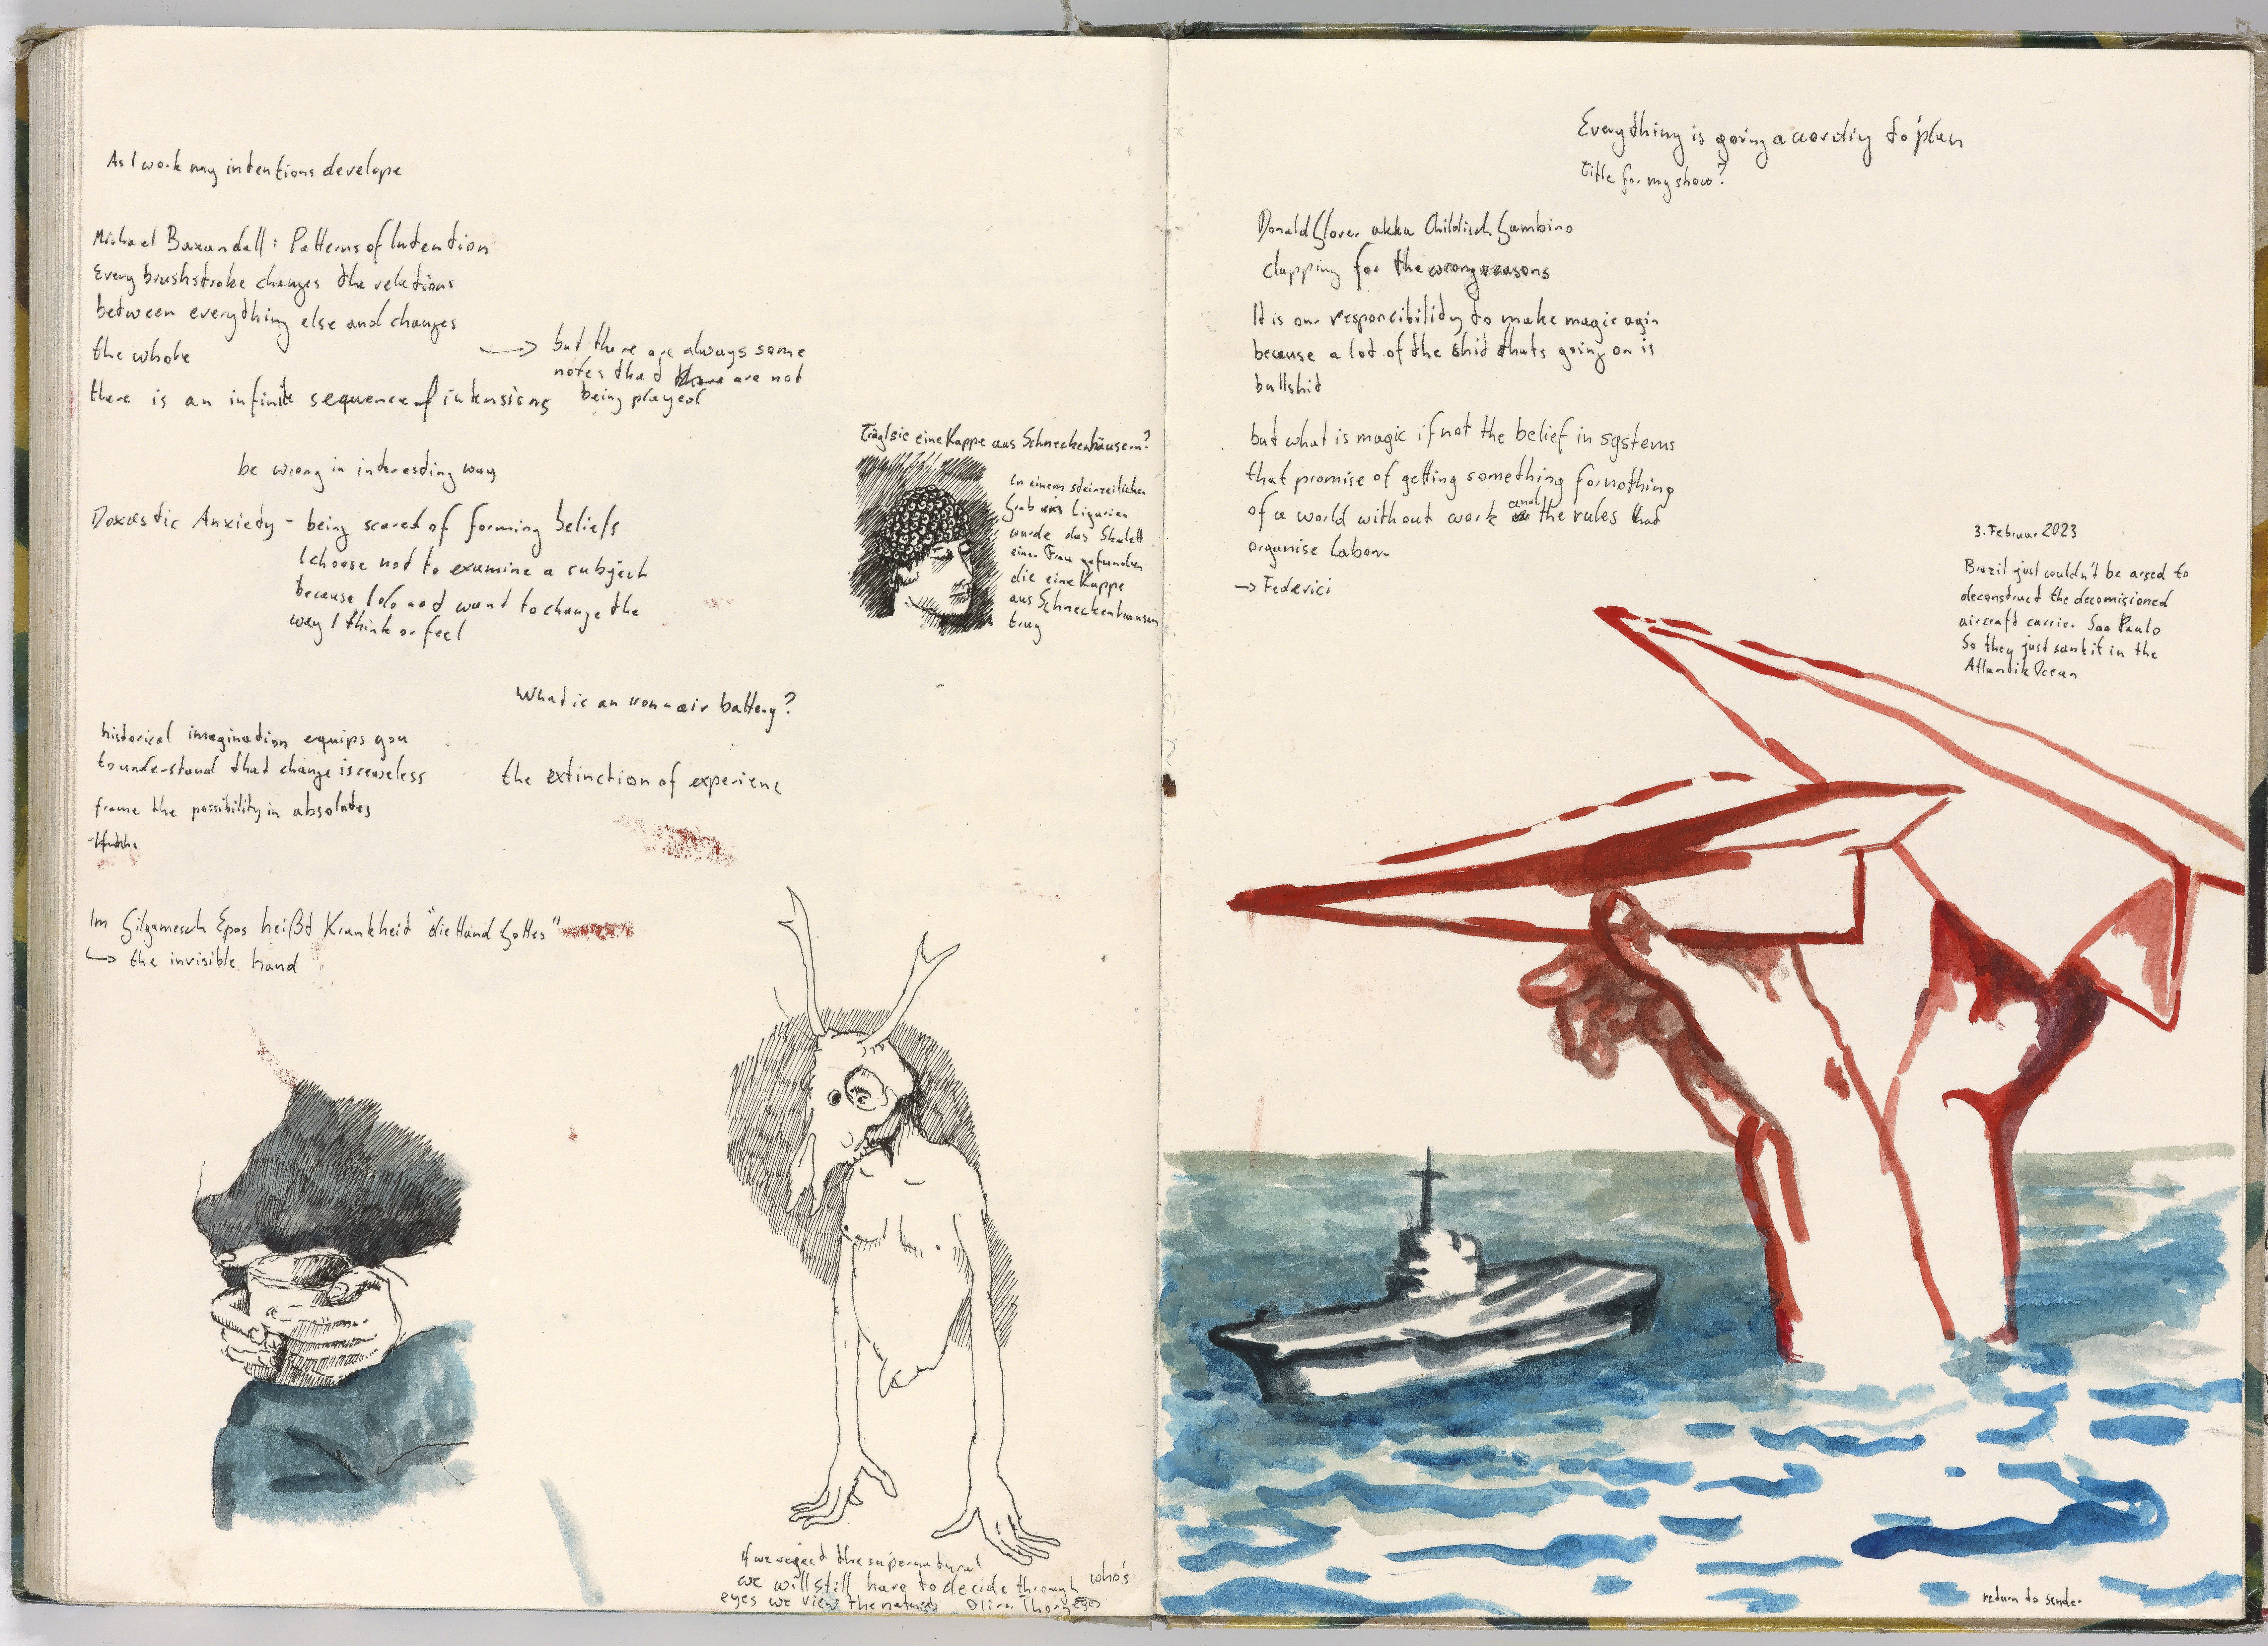 As I work my intentions develope
Michael Baxandall: Patterns of Intention
Every brushstroke changes the relations
between everything else and changes
the whole
→ but there are always some
notes that are not
being played
there is an infinite sequence of intensions
be wrong in interesting way
Doxastic Anxiety - being scared of forming beliefs
I choose not to examine a subject
because I do not want to change the
way I think or feel
Trägt sie eine Kappe aus Schneckenhäusern?
In einem steinzeitlichen
Grab in Ligurien
wurde das Skelett
einer Frau gefunden
die eine Kappe
aus Schneckenhäusern
trug
What is an iron-air battery?
historical imagination equips you
to understand that change is ceaseless
frame the possibility in absolutes
the extinction of experienc
Im Gilgamesch Epos heißt Krankheit "die Hand Gottes"
↳ the invisible hand
If we reject the supernatural
we will still have to decide through who's
eyes we view the natural
eyes
Everything is going acording to plan
title for my show?
Donald Glover akka Childisch Gambino
clapping for the wrong reasons
It is our responcibility to make magic agin
because a lot of the shit thats going on is
bullshit
but what is magic if not the belief in systems
that promise of getting something for nothing
of a world without work and the rules that
organise labour
→ Federici
3. Februar 2023
Brazil just couldn't be arsed to
deconstruct the decomisioned
aircraft carrier Sao Paulo
So they just sank it in the
Atlantik Ocean
return to sender